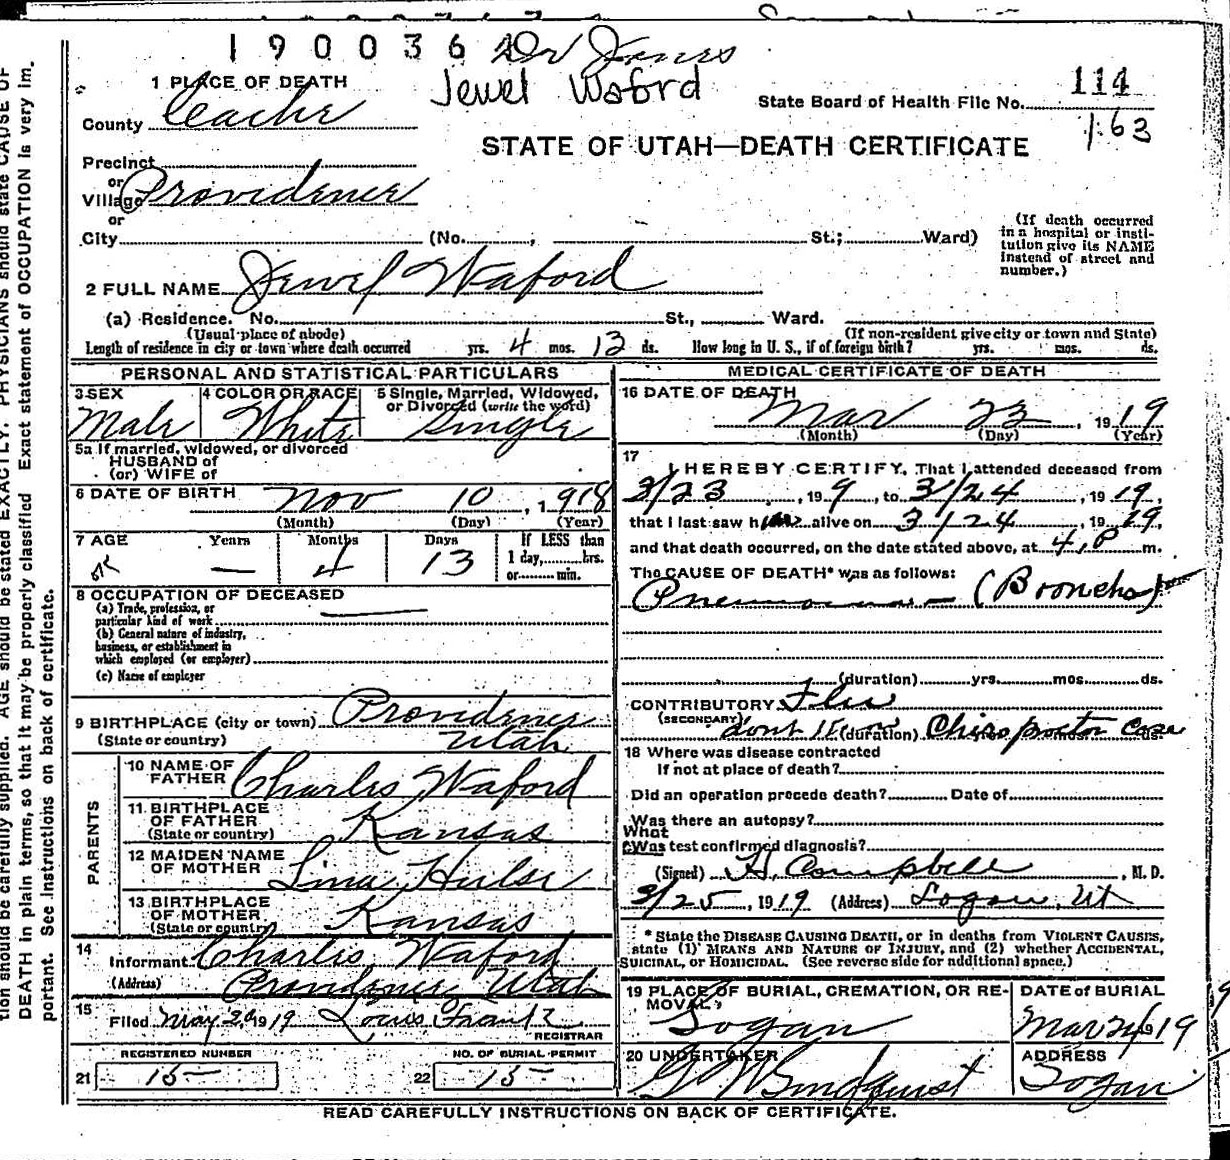 190036
Jewel Waford
1 PLACE OF DEATH
114
County Cache
State Board of Health File No.
163
STATE OF UTAH—DEATH CERTIFICATE
Precinct
or
Village Providence
or
City (No. , St.; Ward)
(If death occurred in a hospital or institution give its NAME instead of street and number.)
2 FULL NAME Jewel Waford
(a) Residence. No. St., Ward.
(Usual place of abode) (If non-resident give city or town and State)
Length of residence in city or town where death occurred yrs. 4 mos. 13 ds. How long in U. S., if of foreign birth? yrs. mos. ds.
PERSONAL AND STATISTICAL PARTICULARS
3 SEX Male
4 COLOR OR RACE White
5 Single, Married, Widowed, or Divorced (write the word) Single
5a If married, widowed, or divorced
HUSBAND of
(or) WIFE of
6 DATE OF BIRTH Nov 10, 1918
(Month) (Day) (Year)
7 AGE Years — Months 4 Days 13 If LESS than 1 day, hrs. or min.
8 OCCUPATION OF DECEASED
(a) Trade, profession, or particular kind of work —
(b) General nature of industry, business, or establishment in which employed (or employer)
(c) Name of employer
9 BIRTHPLACE (city or town) Providence
(State or country) Utah
PARENTS
10 NAME OF FATHER Charles Waford
11 BIRTHPLACE OF FATHER (State or country) Kansas
12 MAIDEN NAME OF MOTHER Lina Hulse
13 BIRTHPLACE OF MOTHER (State or country) Kansas
14 Informant Charles Waford
(Address) Providence Utah
15 Filed 1919 Louis Frantz
REGISTRAR
REGISTERED NUMBER
21 15—
NO. OF BURIAL PERMIT
22 15—
MEDICAL CERTIFICATE OF DEATH
16 DATE OF DEATH Mar 23, 1919
(Month) (Day) (Year)
17 I HEREBY CERTIFY, That I attended deceased from
3/23, 199, to 3/24, 1919,
that I last saw him alive on 3/24, 1919,
and that death occurred, on the date stated above, at 4, P m.
The CAUSE OF DEATH* was as follows:
Pneumonia — (Broncho)
(duration) yrs. mos. ds.
CONTRIBUTORY Flu
(SECONDARY)
(duration) Chiropractor Case
18 Where was disease contracted
If not at place of death?
Did an operation precede death? Date of
Was there an autopsy?
What test confirmed diagnosis?
(Signed) H. Campbell, M. D.
3/25, 1919 (Address) Logan, Ut
* State the DISEASE CAUSING DEATH, or in deaths from VIOLENT CAUSES,
state (1) MEANS AND NATURE OF INJURY, and (2) whether ACCIDENTAL,
SUICIDAL, or HOMICIDAL. (See reverse side for additional space.)
19 PLACE OF BURIAL, CREMATION, OR REMOVAL Logan
DATE of BURIAL Mar 24 1919
20 UNDERTAKER
ADDRESS Logan
READ CAREFULLY INSTRUCTIONS ON BACK OF CERTIFICATE.
tion should be carefully supplied. AGE should be stated EXACTLY. PHYSICIANS should state CAUSE OF
DEATH in plain terms, so that it may be properly classified Exact statement of OCCUPATION is very im.
portant. See instructions on back of certificate.